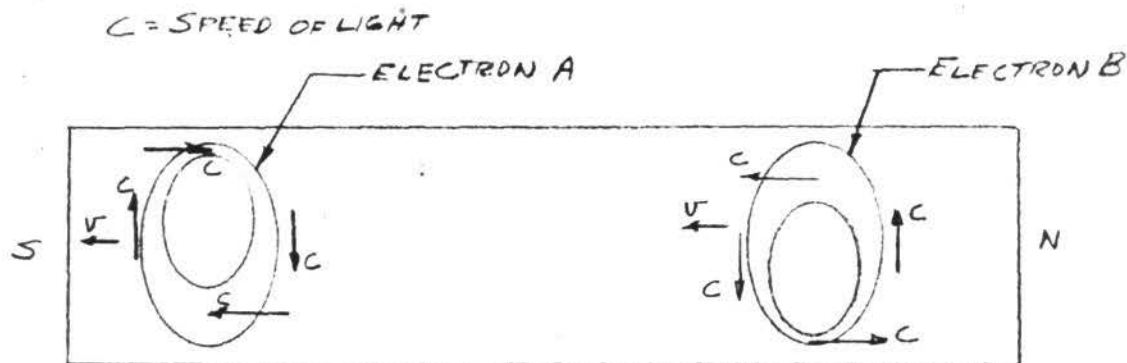 C = SPEED OF LIGHT
ELECTRON A
ELECTRON B
C
C
C
C
V
S
C
C
C
C
V
N